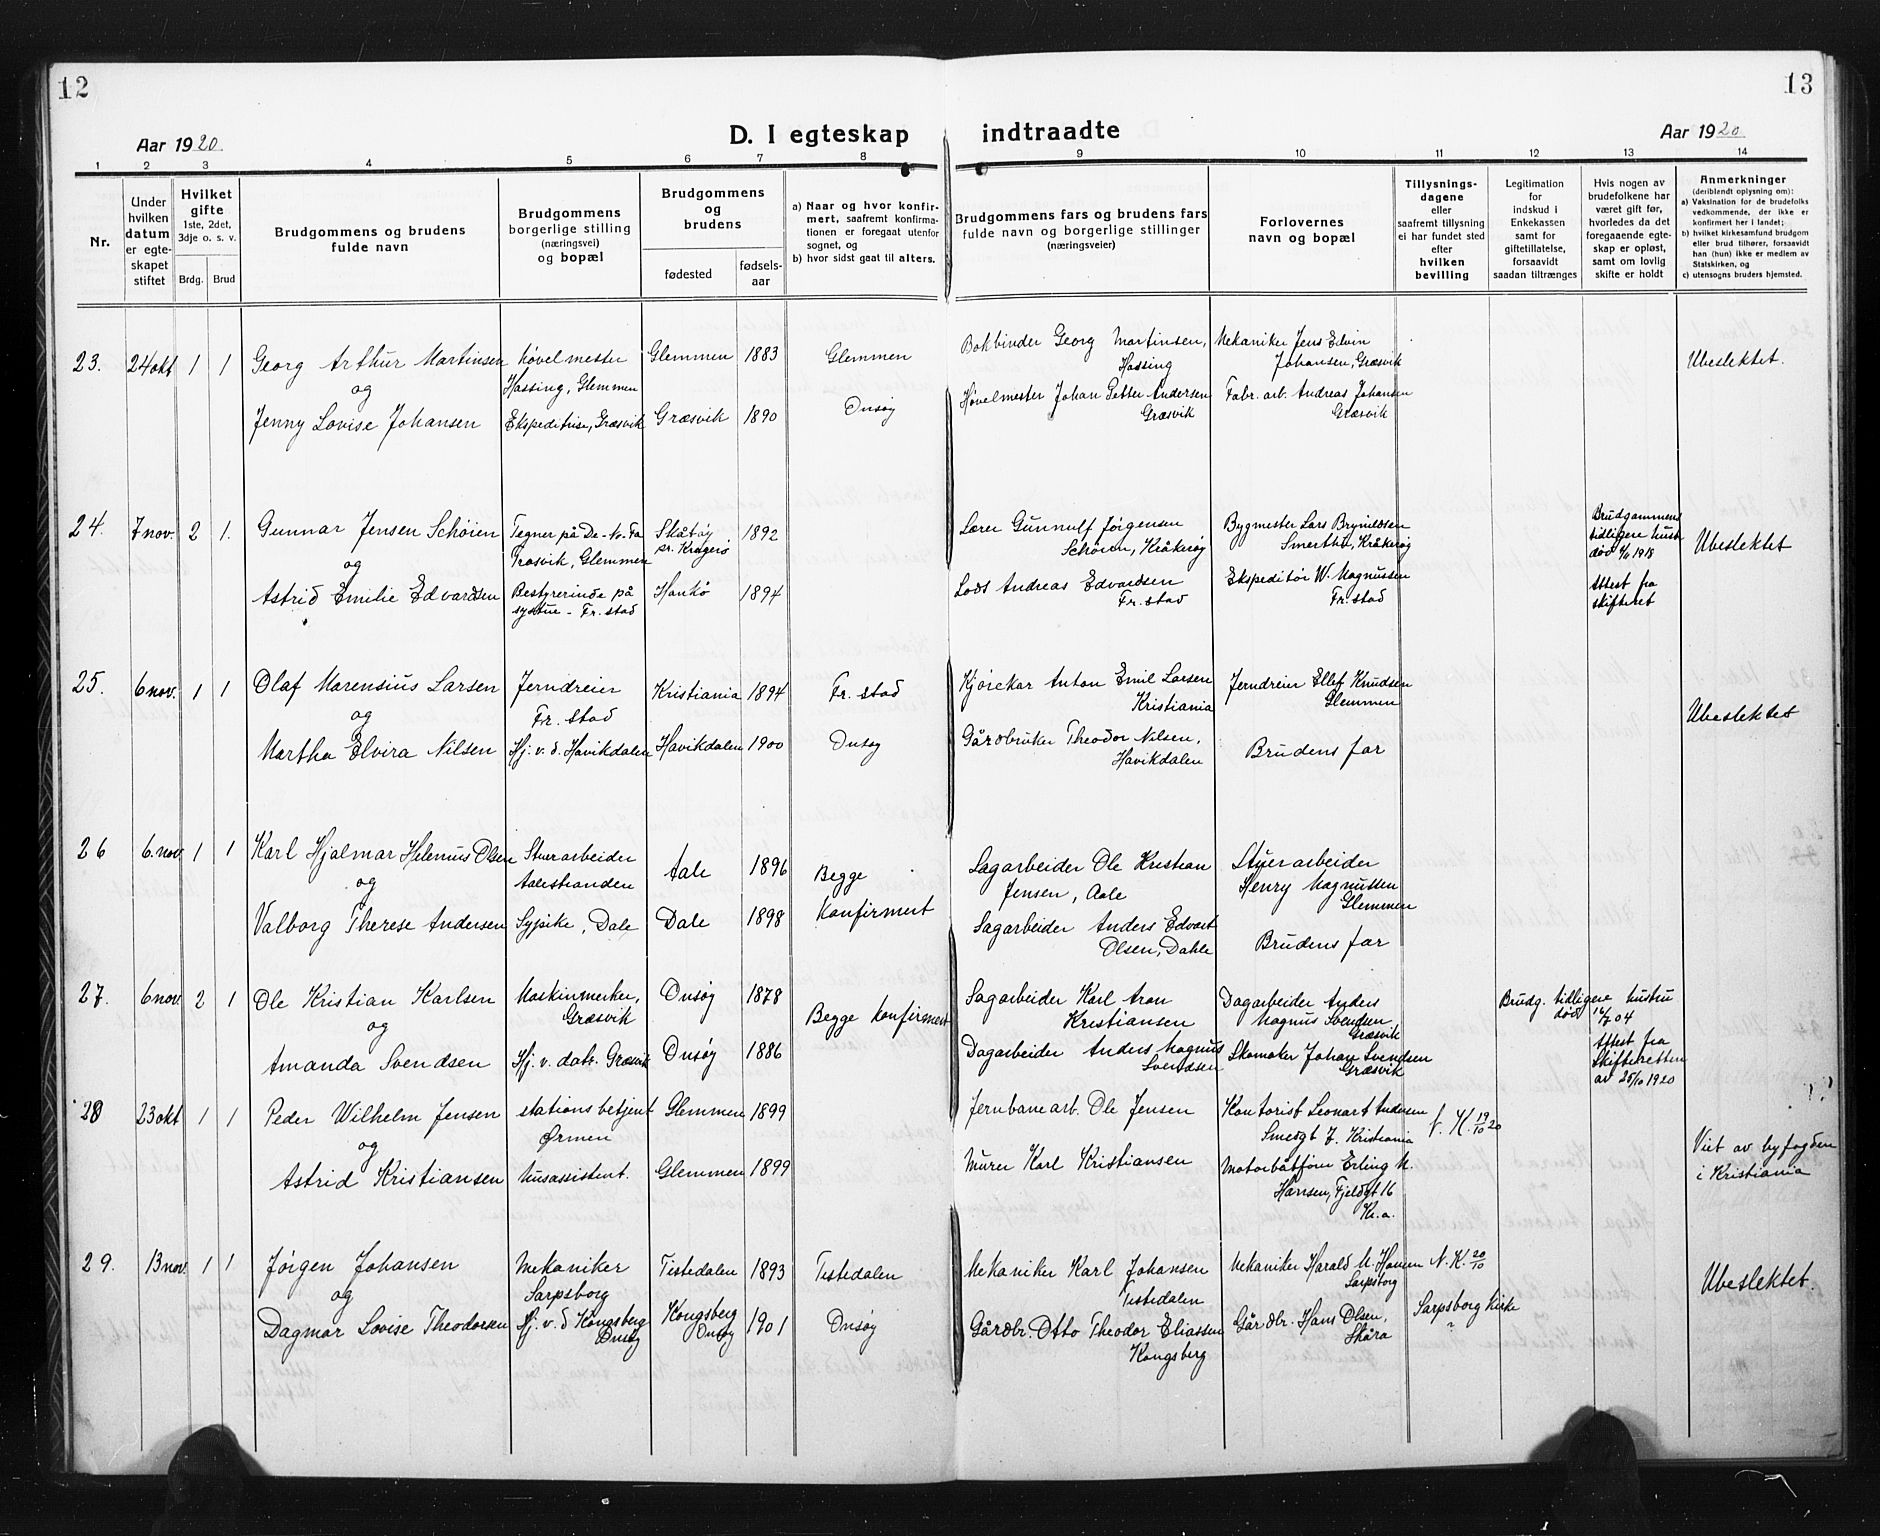 12
13
Aar 1920.
D. I egteskap indtraadte
Aar 1920
1 2 3 4 5 6 7 8 9 10 11 12 13 14
Nr.
Under hvilken datum er egteskapet stiftet
Hvilket gifte 1ste, 2det, 3dje o. s. v.
Brdg. Brud
Brudgommens og brudens fulde navn
Brudgommens borgerlige stilling (næringsvei) og bopæl
Brudgommens og brudens
fødested
fødsels-aar
a) Naar og hvor konfirmert, saafremt konfirmationen er foregaat utenfor sognet, og
b) hvor sidst gaat til alters.
Brudgommens fars og brudens fars fulde navn og borgerlige stillinger (næringsveier)
Forlovernes navn og bopæl
Tillysningsdagene eller saafremt tillysning ei har fundet sted efter hvilken bevilling
Legitimation for indskud i Enkekassen samt for giftetillatelse, forsaavidt saadan tiltrænges
Hvis nogen av brudefolkene har været gift før, hvorledes da det foregaaende egteskap er opløst, samt om lovlig skifte er holdt
Anmerkninger (deriblandt oplysning om):
a) Vaksination for de brudefolks vedkommende, der ikke er konfirmert her i landet;
b) hvilket kirkesamfund brudgom eller brud tilhører, forsaavidt han (hun) ikke er medlem av Statskirken, og
c) utensogns bruders hjemsted.
23. 24 okt 1 1 Georg Arthur Martinsen Høvelmester Glemmen 1883 Glemmen Bokbinder Georg Martinsen, Mekaniker Jens Edvin Ubeslektet.
og Hassing, Glemmen Hassing Johansen, Græsvik
Jenny Lovise Johansen Ekspeditrise, Græsvik Græsvik 1890 Onsøy Høvelmester Johan Petter Andersen Fabr. arb. Andreas Johansen
Græsvik Græsvik
24. 7 nov. 2 1. Gunnar Jensen Schöien Tegner på De-No-Fa Skåtøy 1892 Lærer Gunnulf Jörgensen Bygmester Lars Brynildsen Brudgommens Ubeslektet
og Trosvik, Glemmen pr. Kragerø Schöien, Kråkerøy Kråkerøy tidligere hustr død 1918
Astrid Emilie Edvardsen Bestyrerinde på Hankö 1894 Lods Andreas Edvardsen Ekspeditör W. Magnussen Attest fra
systue - Fr. stad Fr. stad Fr. stad skifteret
25. 6 nov. 1 1 Olaf Marensius Larsen Jerndreier Kristiania 1894 Fr. stad Kjørekar Anton Emil Larsen Jerndreier Ellef Knudsen
og Fr. stad Kristiania Glemmen Ubeslektet
Martha Elvira Nilsen Hj. v. d. Havikdalen Havikdalen 1900 Onsøy Gårdbruker Theodor Nilsen, Brudens far
Havikdalen
26 6. nov 1 1 Karl Hjalmar Helenius Olsen Stuerarbeider Aale 1896 Begge Sagarbeider Ole Kristian Stuerarbeider
og Aalestranden Jensen, Aale Henry Magnussen Glemmen
Valborg Therese Andersen Sypike, Dale Dale 1898 konfirmert Sagarbeider Anders Edvart Brudens far
Olsen, Dahle
27. 6 nov. 2 1 Ole Kristian Karlsen Maskinmerker, Onsøy 1878 Begge konfirmert Sagarbeider Karl Aron Dagarbeider Anders Brudg. tidligere hustru
og Græsvik Kristiansen Magnus Svendsen Græsvik død 04
Amanda Svendsen Hj. v. datr. Græsvik Onsøy 1886 Dagarbeider Anders Magnus Skomaker Johan Svendsen Attest fra
Svendsen Græsvik Skifteretten av 25/10 1920
28 23 okt 1 1 Peder Wilhelm Jensen stationsbetjent Glemmen 1899 Jernbanearb. Ole Jensen Kontorist Leonart Andersen 19/10 20
og Ørmen Smedgt 7. Kristiania Viet av byfogden
Astrid Kristiansen Husassistent. Glemmen 1899 Murer Karl Kristiansen Motorbåtfører Erling M. i Kristiania
Hansen, Fjeldgt 16 Kr.a.
29. 13 nov. 1 1 Jørgen Johansen Mekaniker Tistedalen 1893 Tistedalen Mekaniker Karl Johansen Mekaniker Harald M. Hansen N. K. 20/10
og Sarpsborg Tistedalen Sarpsborg Ubeslektet.
Dagmar Lovise Theodorsen Hj. v. d Kongsberg Kongsberg 1901 Onsøy Gårdbr. Otto Theodor Eliassen Gårdbr. Hans Olsen, Sarpsborg Kirke
Onsøy Onsøy Kongsberg Skåra